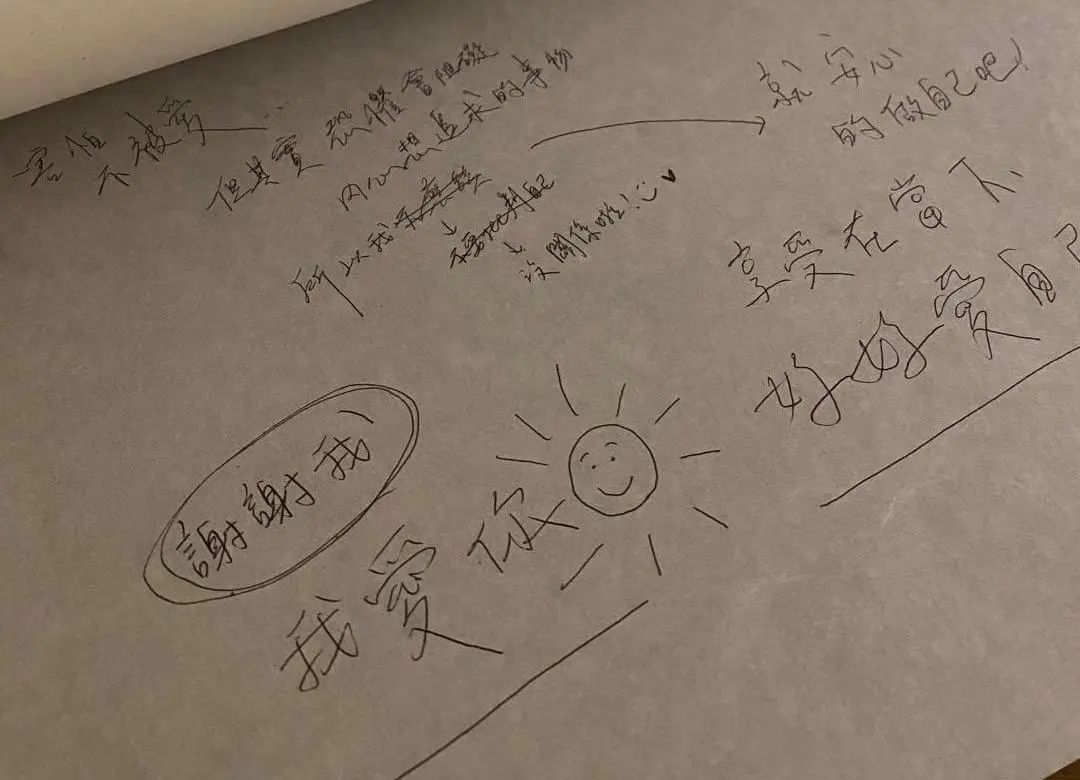 害怕
不被愛...
但其實 恐懼會阻礙
內心想追求的事物
所以我
不要批判自己
沒關係啦!
就安心
的做自己吧!
享受在當下
好好愛自己
謝謝我
我愛你